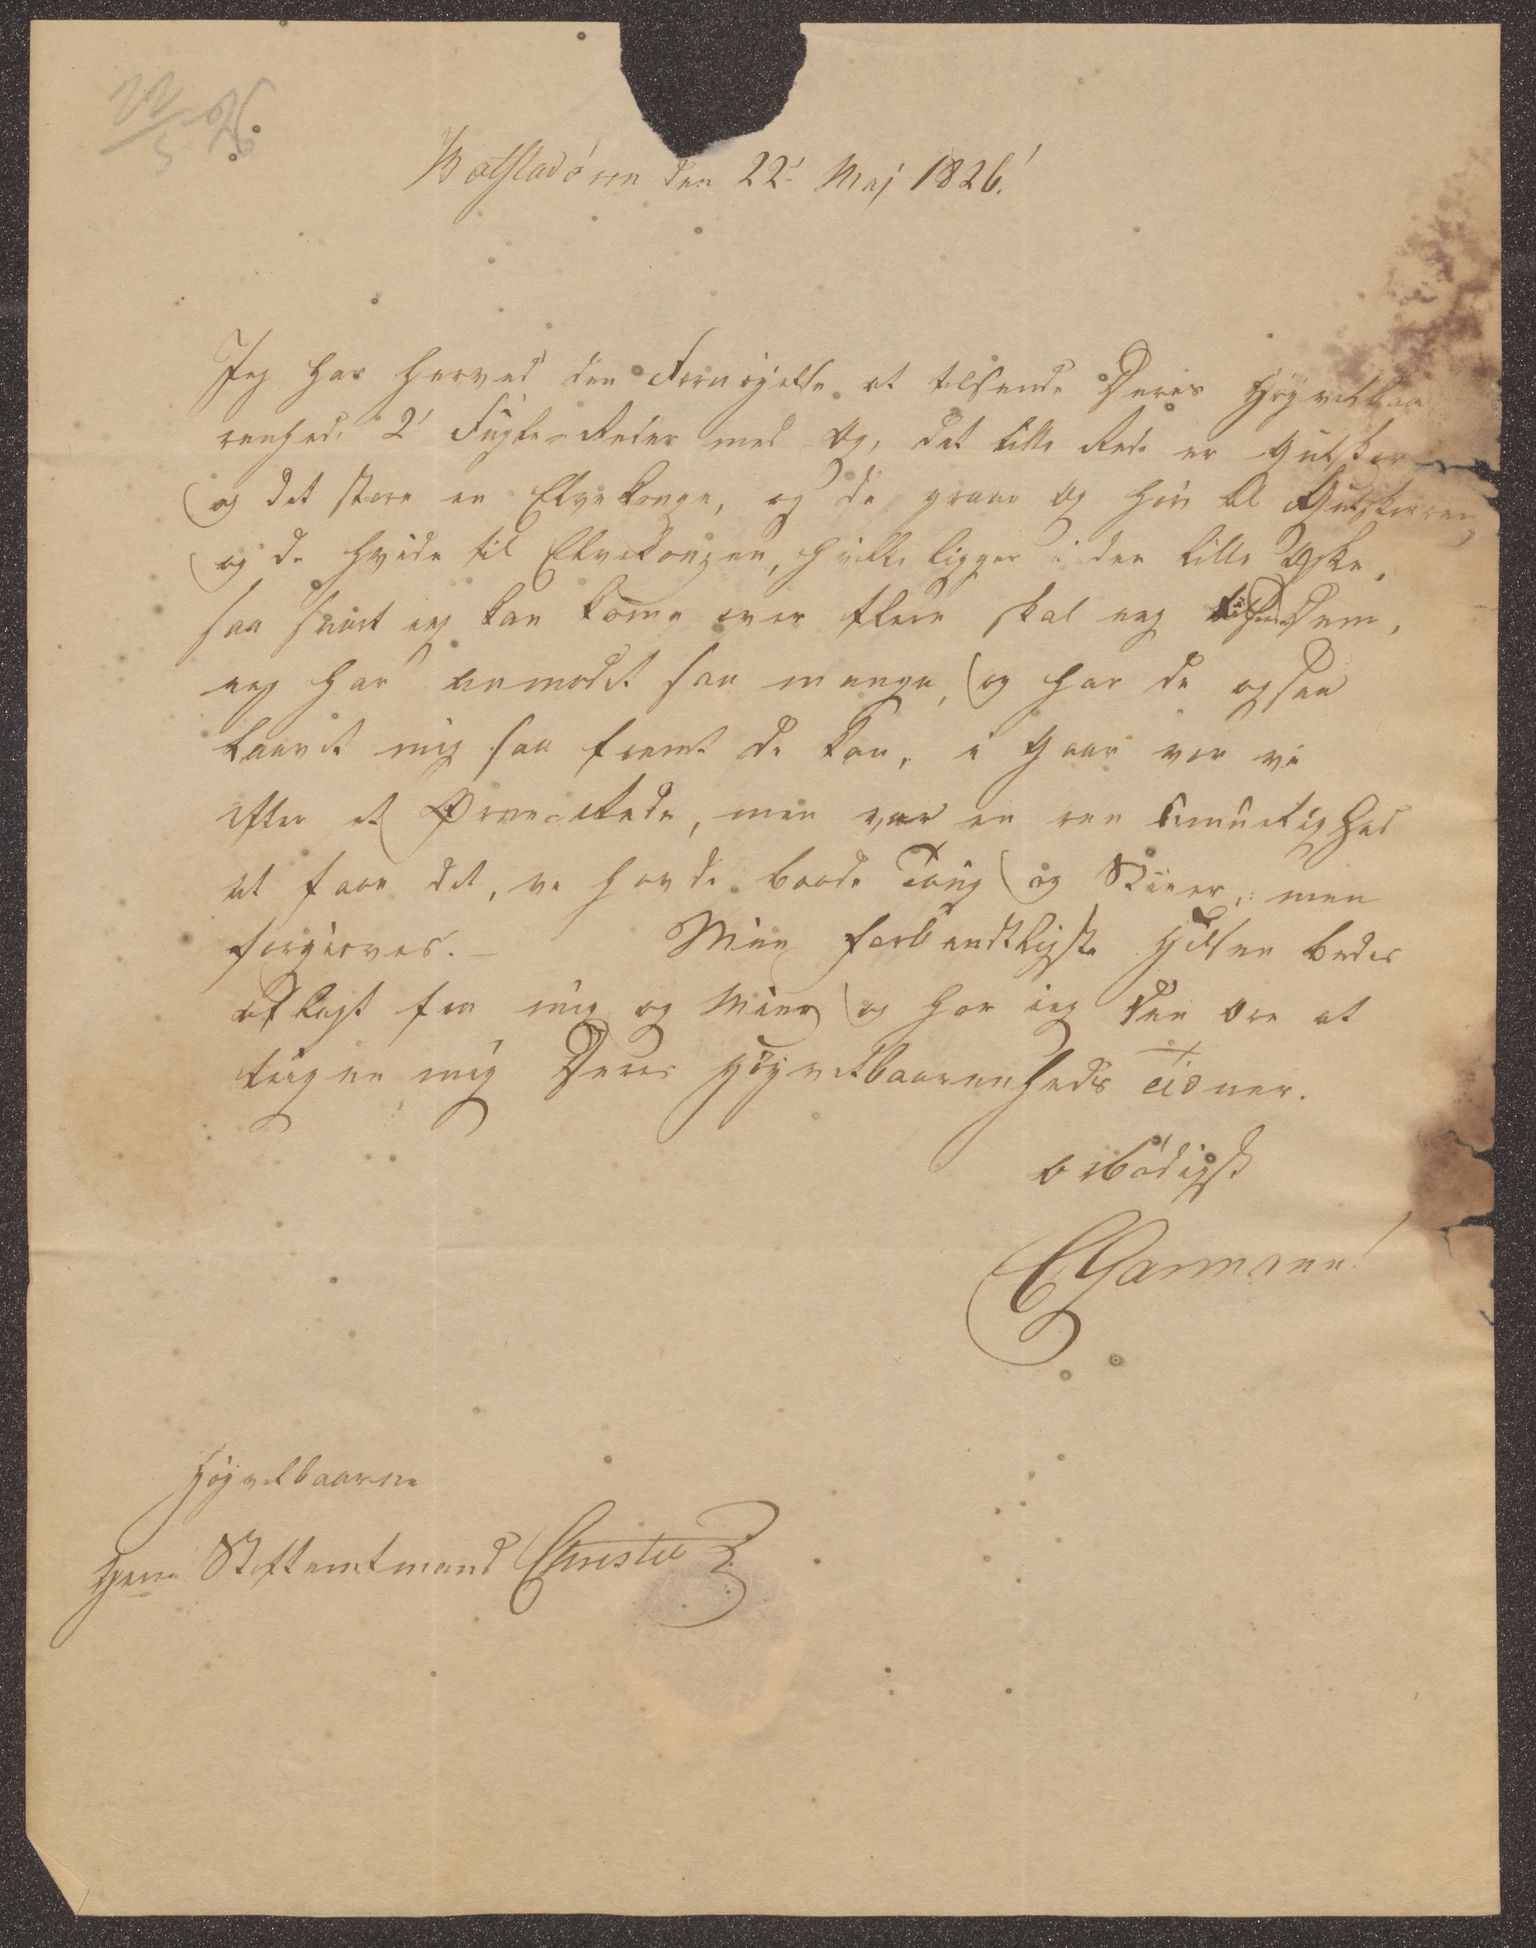 22/5 26.
Batsladøren den 22' Maj 1826.
Jeg har herved den Fornøyelse at tilsende Deres Høyvelbaa
renhed, 2' Fugle-Reder med Eg, det lille Rede er Gulsker
og det store en Elvekonge, og de graae Eg hør til Gulskerren
og de hvide til Elvekongen, hvilke ligger i den lille Eske,
saa snart ieg kan kome over flere skal ieg tilsende Dem,
ieg har anmodet saa mange, og har de ogsaa
laavet mig saa fremt de kan, i Gaar var vi
efter et Ørne-Rede, men var en ren Umuelighed
at faae det, vi havde baade Toug og Stier, men
forgieves. – Min forbindtligste Hilsen bedes
aflagt fra mig og Mine og har ieg den Ære at
teigne mig Deres Høyvelbaarenheds Tiener.
ærbødigst
CGarmann
Høyvelbaarne
Herr Stiftamtmand Christie